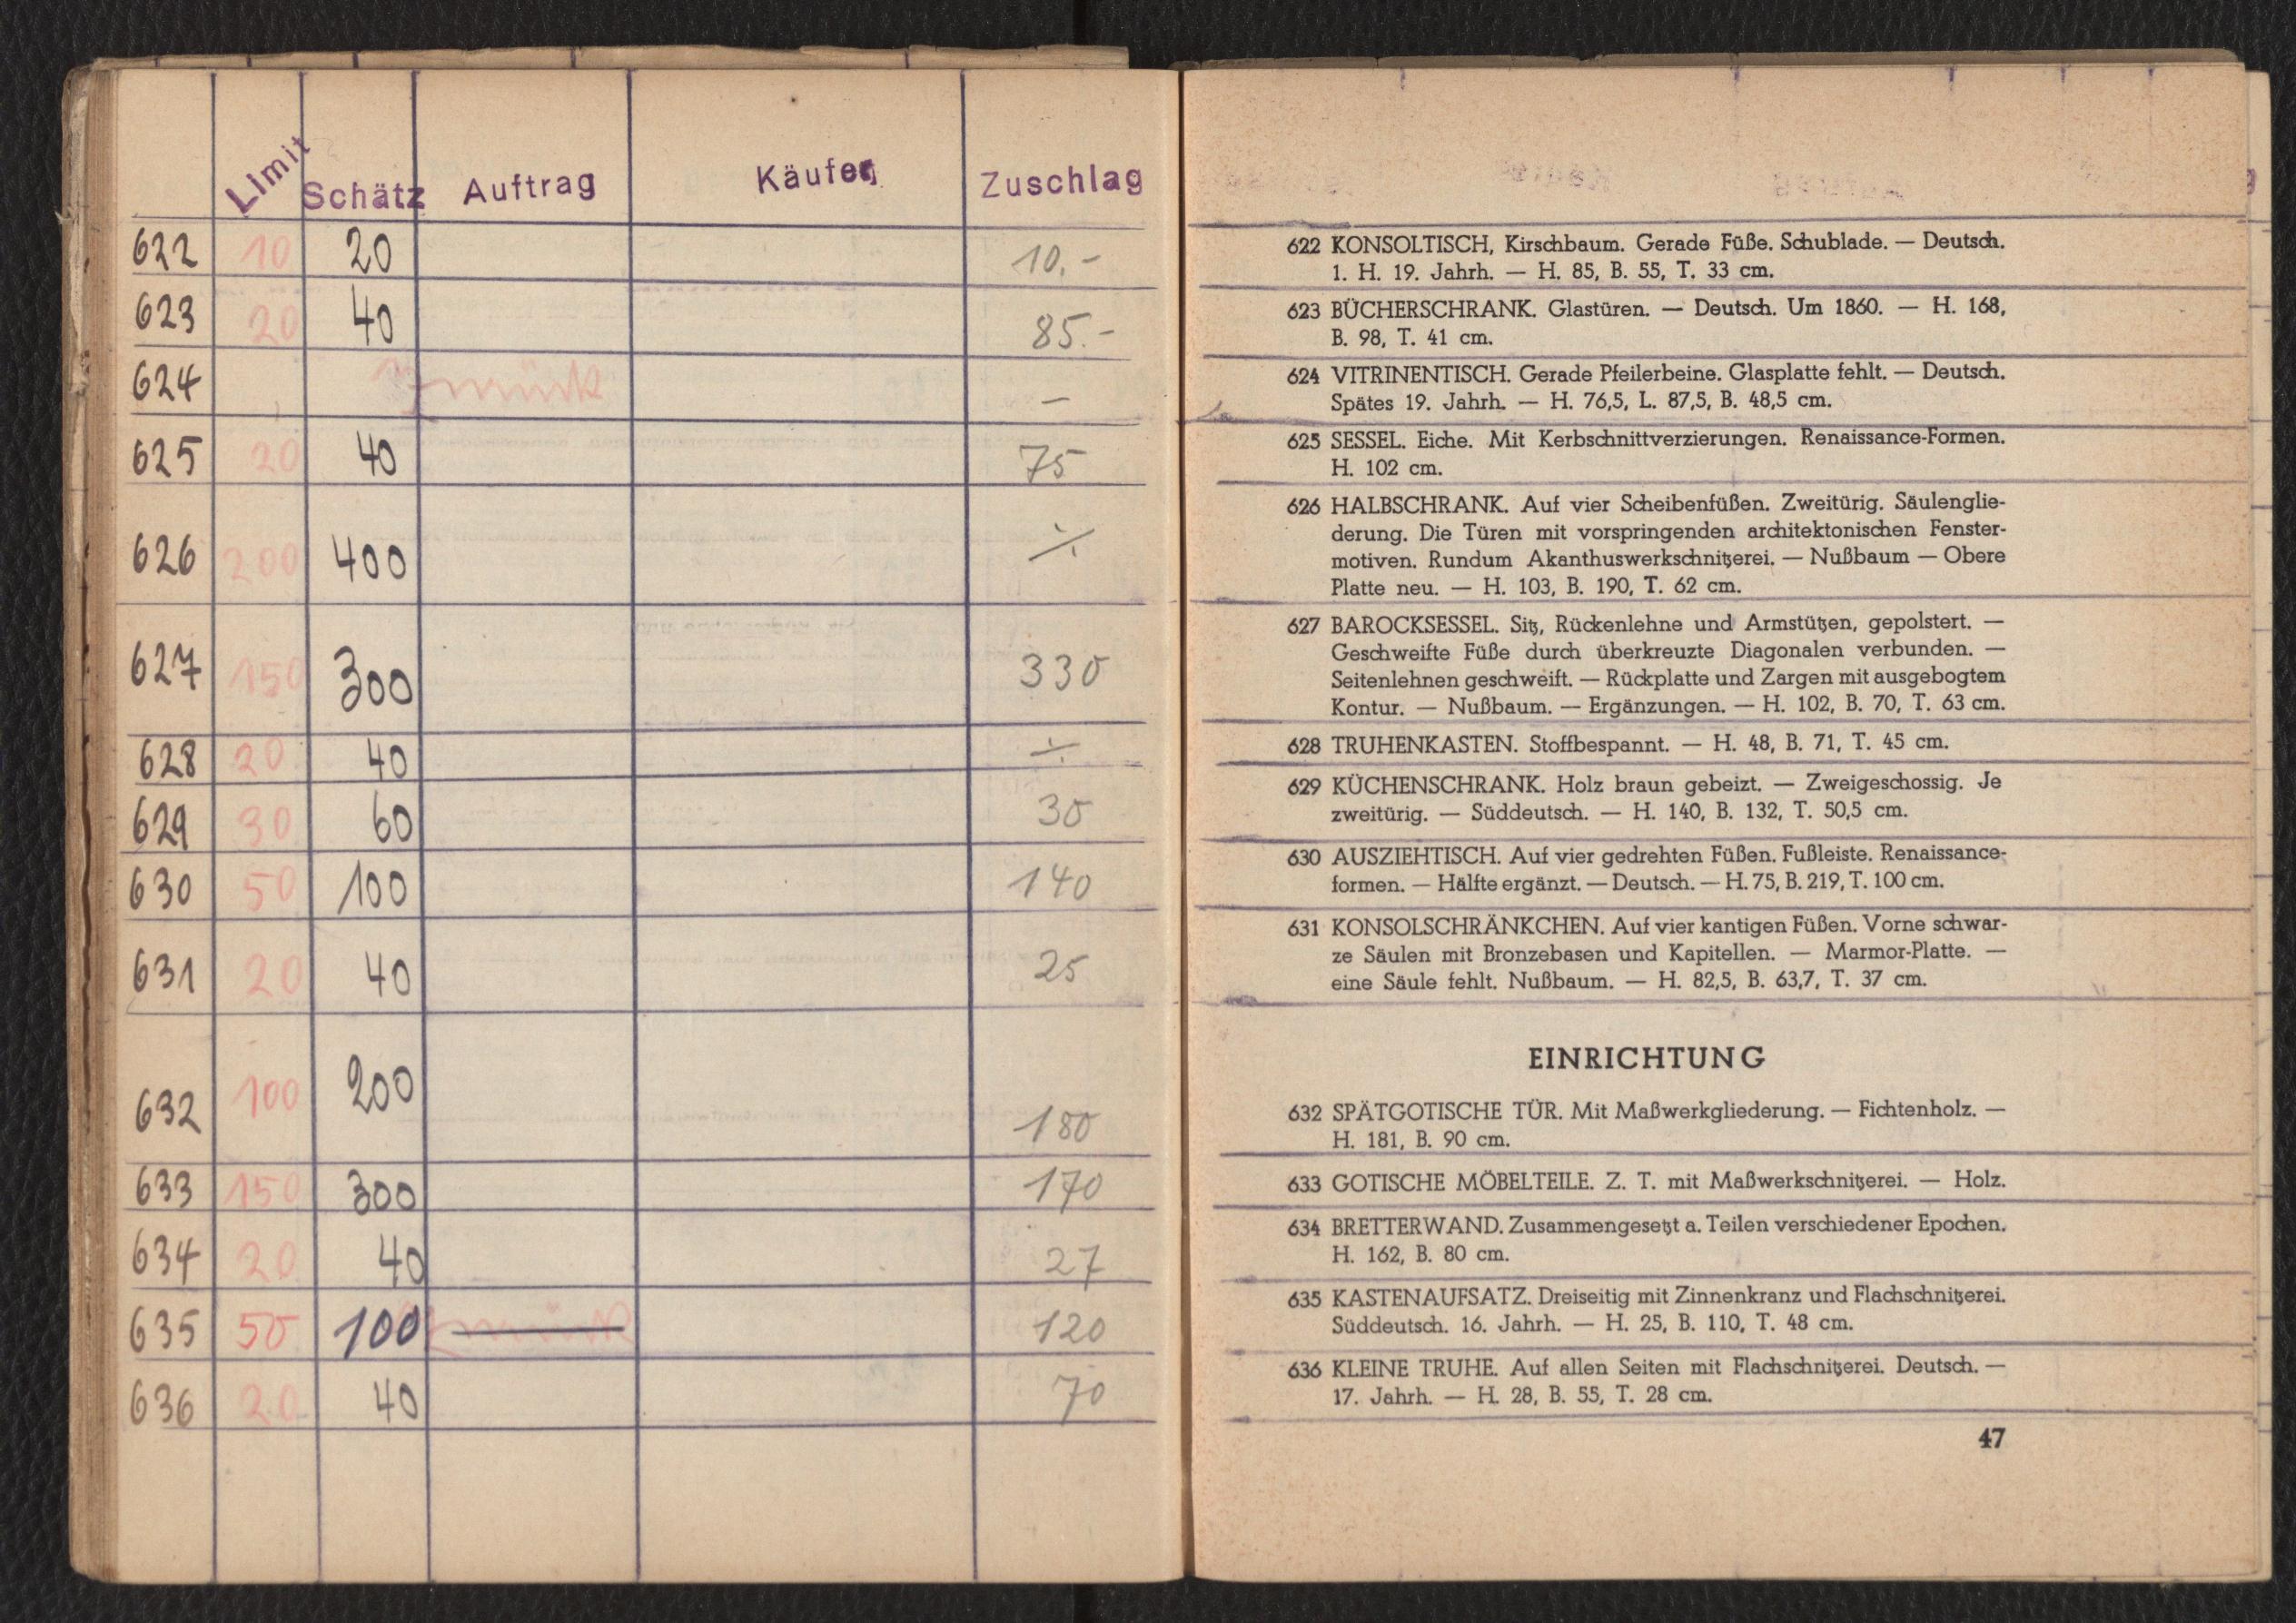 Limit Schätz Auftrag Käufer Zuschlag
622 10 20 10.-
623 20 40 85.-
624 Zurück —
625 20 40 75
626 200 400 ·/.
627 150 300 330
628 20 40 ·/.
629 30 60 30
630 50 100 140
631 20 40 25
632 100 200 180
633 150 300 170
634 20 40 27
635 50 100 Zurück 120
636 20 40 70
622 KONSOLTISCH, Kirschbaum. Gerade Füße. Schublade. — Deutsch.
1. H. 19. Jahrh. — H. 85, B. 55, T. 33 cm.
623 BÜCHERSCHRANK. Glastüren. — Deutsch. Um 1860. — H. 168,
B. 98, T. 41 cm.
624 VITRINENTISCH. Gerade Pfeilerbeine. Glasplatte fehlt. — Deutsch.
Spätes 19. Jahrh. — H. 76,5, L. 87,5, B. 48,5 cm.
625 SESSEL. Eiche. Mit Kerbschnittverzierungen. Renaissance-Formen.
H. 102 cm.
626 HALBSCHRANK. Auf vier Scheibenfüßen. Zweitürig. Säulenglie-
derung. Die Türen mit vorspringenden architektonischen Fenster-
motiven. Rundum Akanthuswerkschnitzerei. — Nußbaum — Obere
Platte neu. — H. 103, B. 190, T. 62 cm.
627 BAROCKSESSEL. Sitz, Rückenlehne und Armstützen, gepolstert. —
Geschweifte Füße durch überkreuzte Diagonalen verbunden. —
Seitenlehnen geschweift. — Rückplatte und Zargen mit ausgebogtem
Kontur. — Nußbaum. — Ergänzungen. — H. 102, B. 70, T. 63 cm.
628 TRUHENKASTEN. Stoffbespannt. — H. 48, B. 71, T. 45 cm.
629 KÜCHENSCHRANK. Holz braun gebeizt. — Zweigeschossig. Je
zweitürig. — Süddeutsch. — H. 140, B. 132, T. 50,5 cm.
630 AUSZIEHTISCH. Auf vier gedrehten Füßen. Fußleiste. Renaissance-
formen. — Hälfte ergänzt. — Deutsch. — H. 75, B. 219, T. 100 cm.
631 KONSOLSCHRÄNKCHEN. Auf vier kantigen Füßen. Vorne schwar-
ze Säulen mit Bronzebasen und Kapitellen. — Marmor-Platte. —
eine Säule fehlt. Nußbaum. — H. 82,5, B. 63,7, T. 37 cm.
EINRICHTUNG
632 SPÄTGOTISCHE TÜR. Mit Maßwerkgliederung. — Fichtenholz. —
H. 181, B. 90 cm.
633 GOTISCHE MÖBELTEILE. Z. T. mit Maßwerkschnitzerei. — Holz.
634 BRETTERWAND. Zusammengesetzt a. Teilen verschiedener Epochen.
H. 162, B. 80 cm.
635 KASTENAUFSATZ. Dreiseitig mit Zinnenkranz und Flachschnitzerei.
Süddeutsch. 16. Jahrh. — H. 25, B. 110, T. 48 cm.
636 KLEINE TRUHE. Auf allen Seiten mit Flachschnitzerei. Deutsch. —
17. Jahrh. — H. 28, B. 55, T. 28 cm.
47